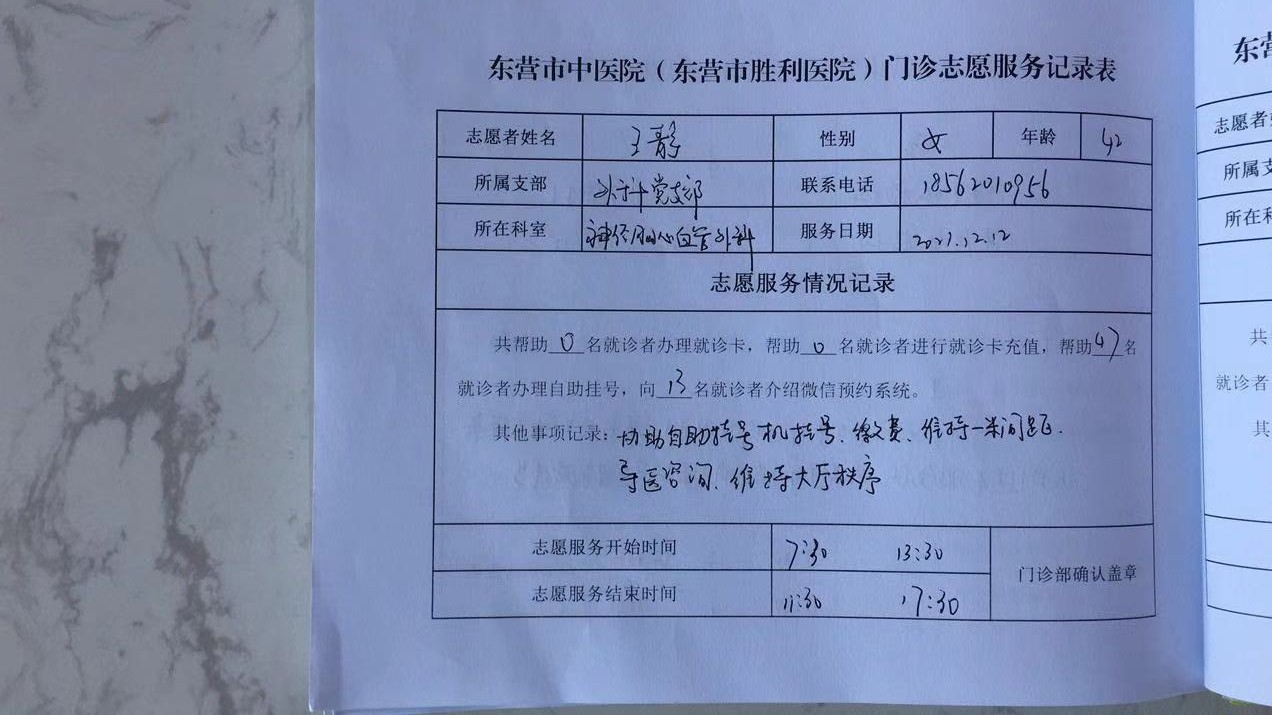 东营市中医院（东营市胜利医院）门诊志愿服务记录表
志愿者姓名 王静 性别 女 年龄 42
所属支部 外科党支部 联系电话 18562010956
所在科室 神经胸心血管外科 服务日期 2021.12.12
志愿服务情况记录
共帮助 0 名就诊者办理就诊卡，帮助 0 名就诊者进行就诊卡充值，帮助 47 名
就诊者办理自助挂号，向 13 名就诊者介绍微信预约系统。
其他事项记录：协助自助挂号机挂号、缴费、维持一米间距.
导医咨询、维持大厅秩序
志愿服务开始时间 7:30 13:30
门诊部确认盖章
志愿服务结束时间 11:30 17:30
东营
志愿者
所属支
所在科
共
就诊者
其